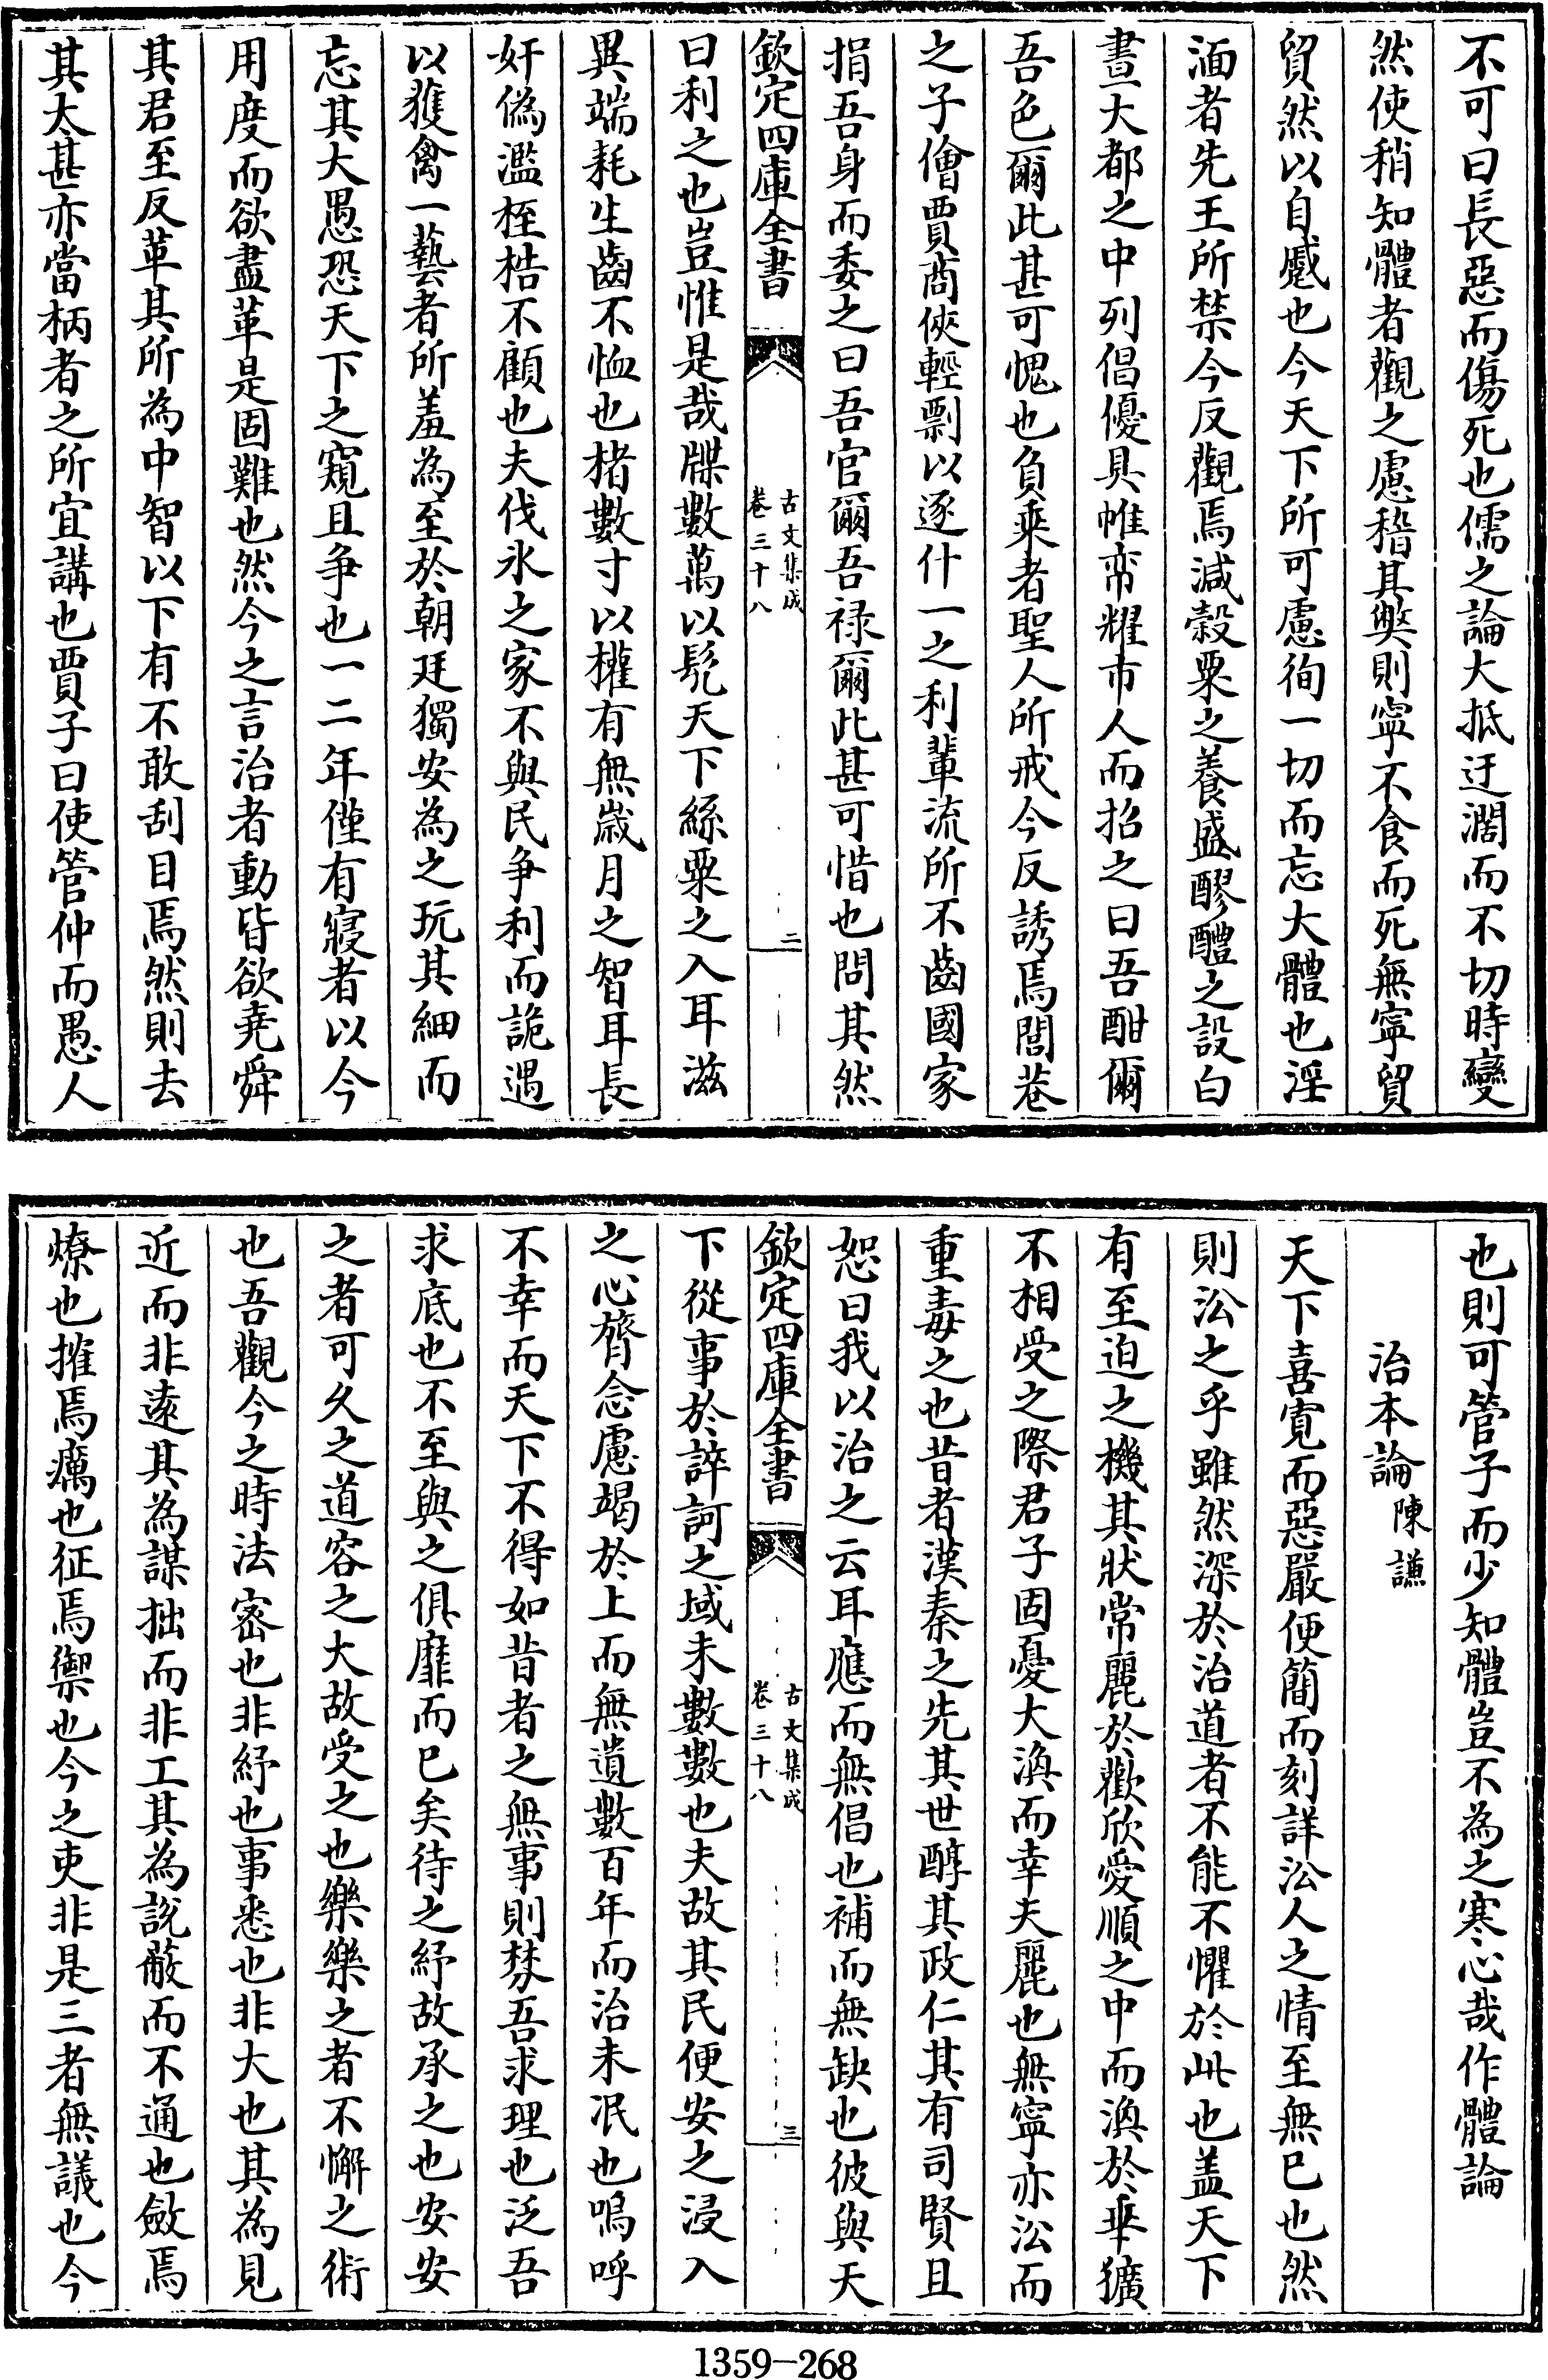 不可曰長惡而傷死也儒之論大抵迂濶而不切時變
然使稍知體者觀之慮稽其獘則寜不食而死無寜貿
貿然以自慼也今天下所可慮徇一切而忘大體也淫
湎者先王所禁今反觀焉減穀粟之養盛醪醴之設白
晝大都之中列倡優具帷帟耀市人而招之曰吾酣爾
吾色爾此甚可愧也負乗者聖人所戒今反誘焉閭巷
之子儈賈商俠輕剽以逐什一之利輩流所不齒國家
捐吾身而委之曰吾官爾吾禄爾此甚可惜也問其然
欽定四庫全書
古文集成
卷三十八
二
曰利之也豈惟是哉牒數萬以髠天下絲粟之入耳滋
異端耗生齒不恤也楮數寸以權有無嵗月之智耳長
奸偽濫桎梏不顧也夫伐氷之家不與民争利而詭遇
以獲禽一藝者所羞為至於朝廷獨安為之玩其細而
忘其大愚恐天下之窺且争也一二年僅有寢者以今
用度而欲盡革是固難也然今之言治者動皆欲堯舜
其君至反革其所為中智以下有不敢刮目焉然則去
其大甚亦當柄者之所宜講也賈子曰使管仲而愚人
也則可管子而少知體豈不為之寒心哉作體論
治本論 陳謙
天下喜寛而惡嚴便簡而刻詳㳂人之情至無已也然
則㳂之乎雖然深於治道者不能不懼於此也盖天下
有至迫之機其狀常麗於歡欣愛順之中而渙於乖獷
不相受之際君子固憂大渙而幸夫麗也無寜亦㳂而
重毒之也昔者漢秦之先其世醇其政仁其有司賢且
恕曰我以治之云耳應而無倡也補而無缺也彼與天
欽定四庫全書
古文集成
卷三十八
三
下從事於誶訶之域未數數也夫故其民便安之浸入
之心膂念慮竭於上而無遺數百年而治未泯也嗚呼
不幸而天下不得如昔者之無事則棼吾求理也泛吾
求底也不至與之俱靡而已矣待之紓故承之也安安
之者可久之道容之大故受之也樂樂之者不懈之術
也吾觀今之時法宻也非紓也事悉也非大也其為見
近而非逺其為謀拙而非工其為説蔽而不通也斂焉
燎也摧焉癘也征焉禦也今之吏非是三者無議也今
1359-268